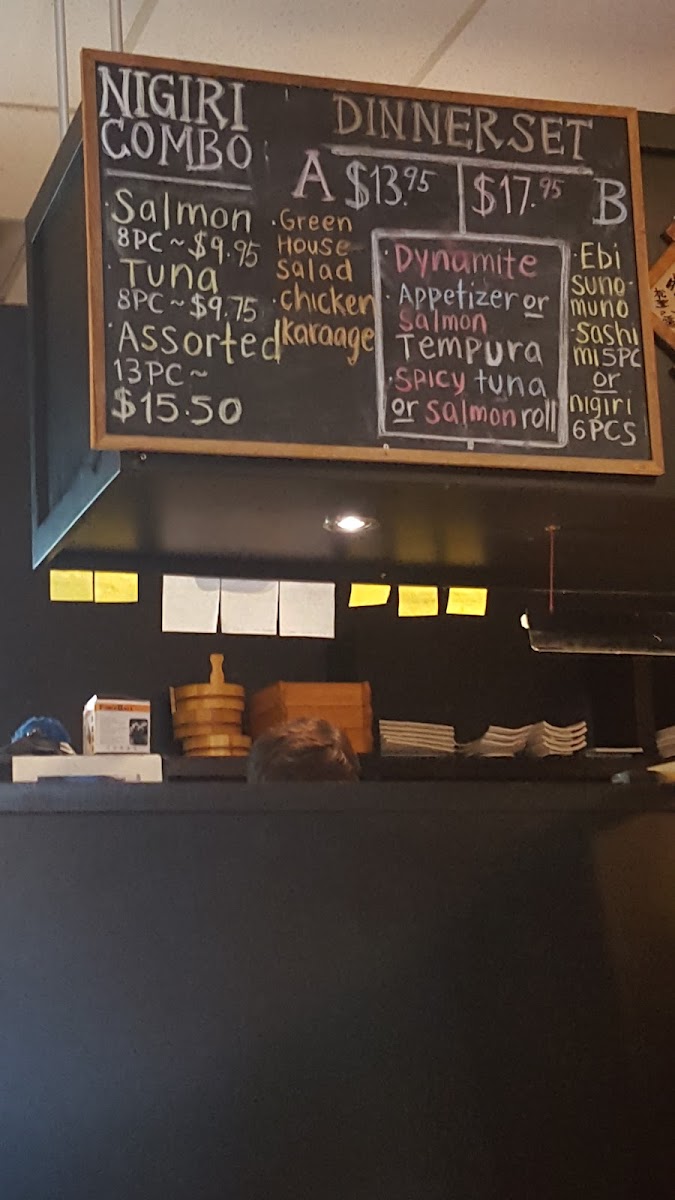 NIGIRI
COMBO
Salmon
8PC ~ $9.95
Tuna
8PC ~ $9.75
Assorted
13PC ~
$15.50
DINNER SET
A $13.95
$17.95 B
· Green
House
Salad
· chicken
karaage
· Dynamite
· Appetizer or
Salmon
Tempura
· Spicy tuna
or Salmon roll
· Ebi
suno
muno
· Sashi
mi 5PC
or
nigiri
6PCS